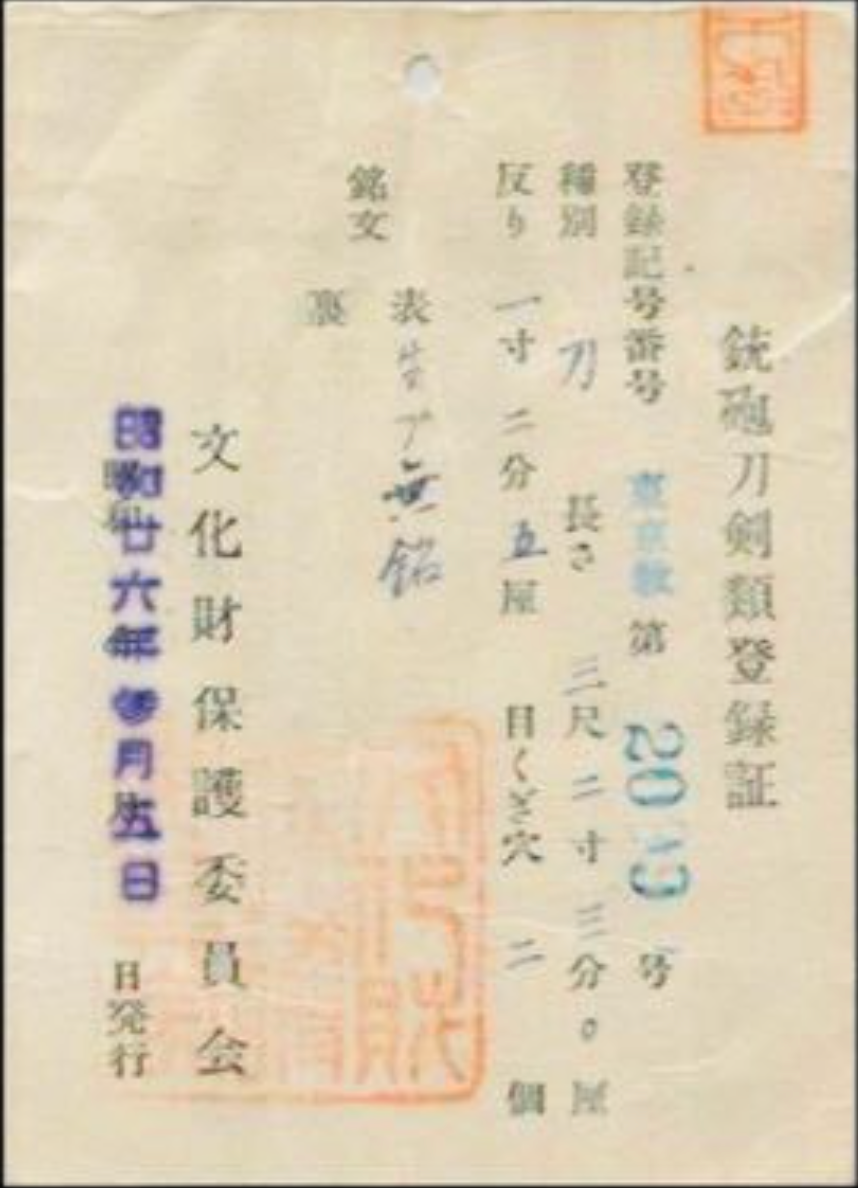 銃砲刀剣類登録証
登録記号番号 東京教 第 号
種別 刀 長さ 二寸 三分 〇厘
反り 一寸 二分 五厘 目くぎ穴 二 個
銘文
表 生ブ無銘
裏
文化財保護委員会
昭和廿六年 月 五日 日発行